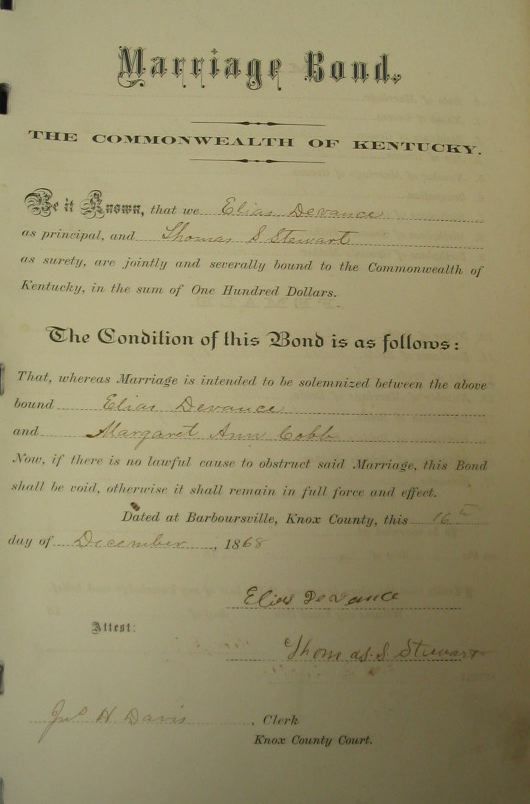 Marriage Bond.
THE COMMONWEALTH OF KENTUCKY.
Be it Known, that we Elias Devance
as principal, and Thomas S Stewart
as surety, are jointly and severally bound to the Commonwealth of
Kentucky, in the sum of One Hundred Dollars.
The Condition of this Bond is as follows:
That, whereas Marriage is intended to be solemnized between the above
bound Elias Devance
and Margaret Ann Cobb
Now, if there is no lawful cause to obstruct said Marriage, this Bond
shall be void, otherwise it shall remain in full force and effect.
Dated at Barboursville, Knox County, this 16th
day of December, 1868
Elias Devance
Attest:
Thomas. S Stewart
Jno H. Davis, Clerk
Knox County Court.